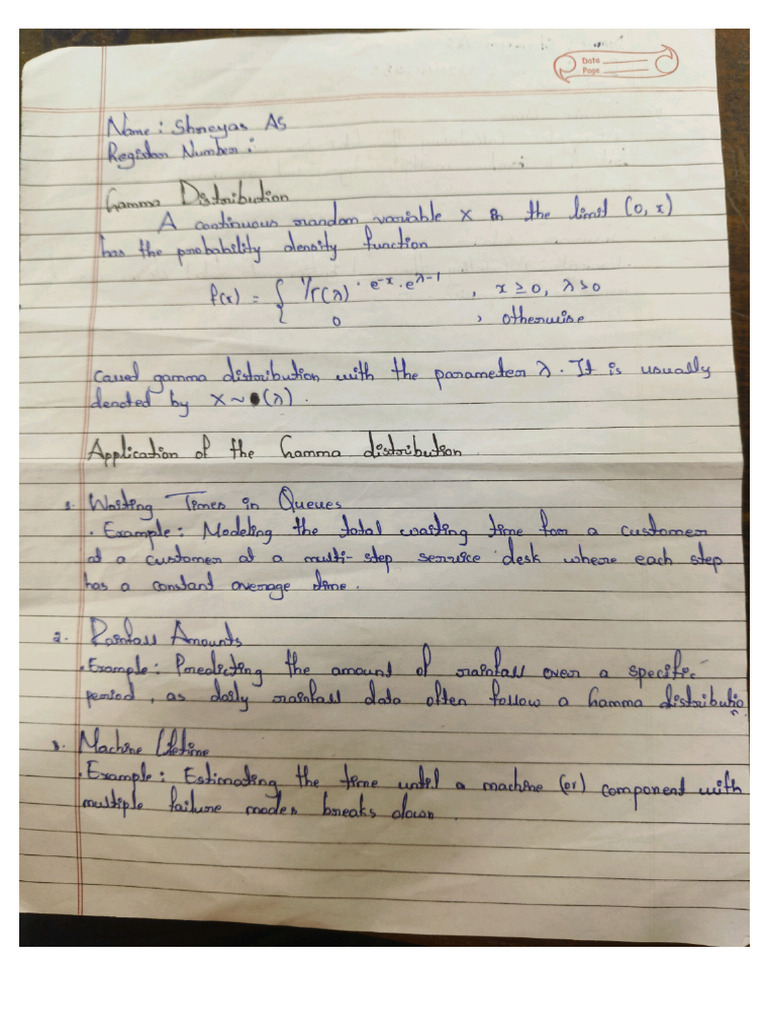 Date
Page
Name: Shreyas AS
Register Number:
Gamma Distribution
A continuous random variable X in the limit (0, x)
has the probability density function
f(x) = { 1/Γ(λ) · e^-x · e^λ-1 , x ≥ 0, λ > 0
0 , otherwise
called gamma distribution with the parameter λ. It is usually
denoted by X ~ (λ).
Application of the Gamma distribution
1. Waiting Times in Queues
. Example: Modeling the total waiting time for a customer
at a customer at a multi-step service desk where each step
has a constant average time.
2. Rainfall Amounts
. Example: Predicting the amount of rainfall over a specific
period, as daily rainfall data often follow a Gamma distributio
n
3. Machine Lifetime
. Example: Estimating the time until a machine (or) component with
multiple failure modes breaks down.